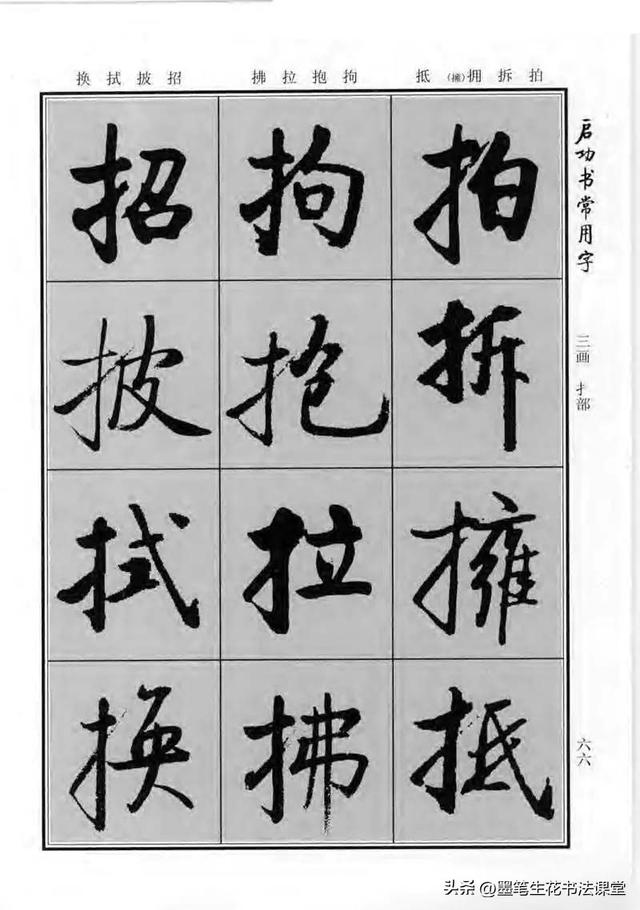 启功书常用字
三画 扌部
六六
拍拆拥(擁)抵
拘抱拉拂
招披拭换
拍拆擁抵
拘抱拉拂
招披拭换
头条 @墨笔生花书法课堂